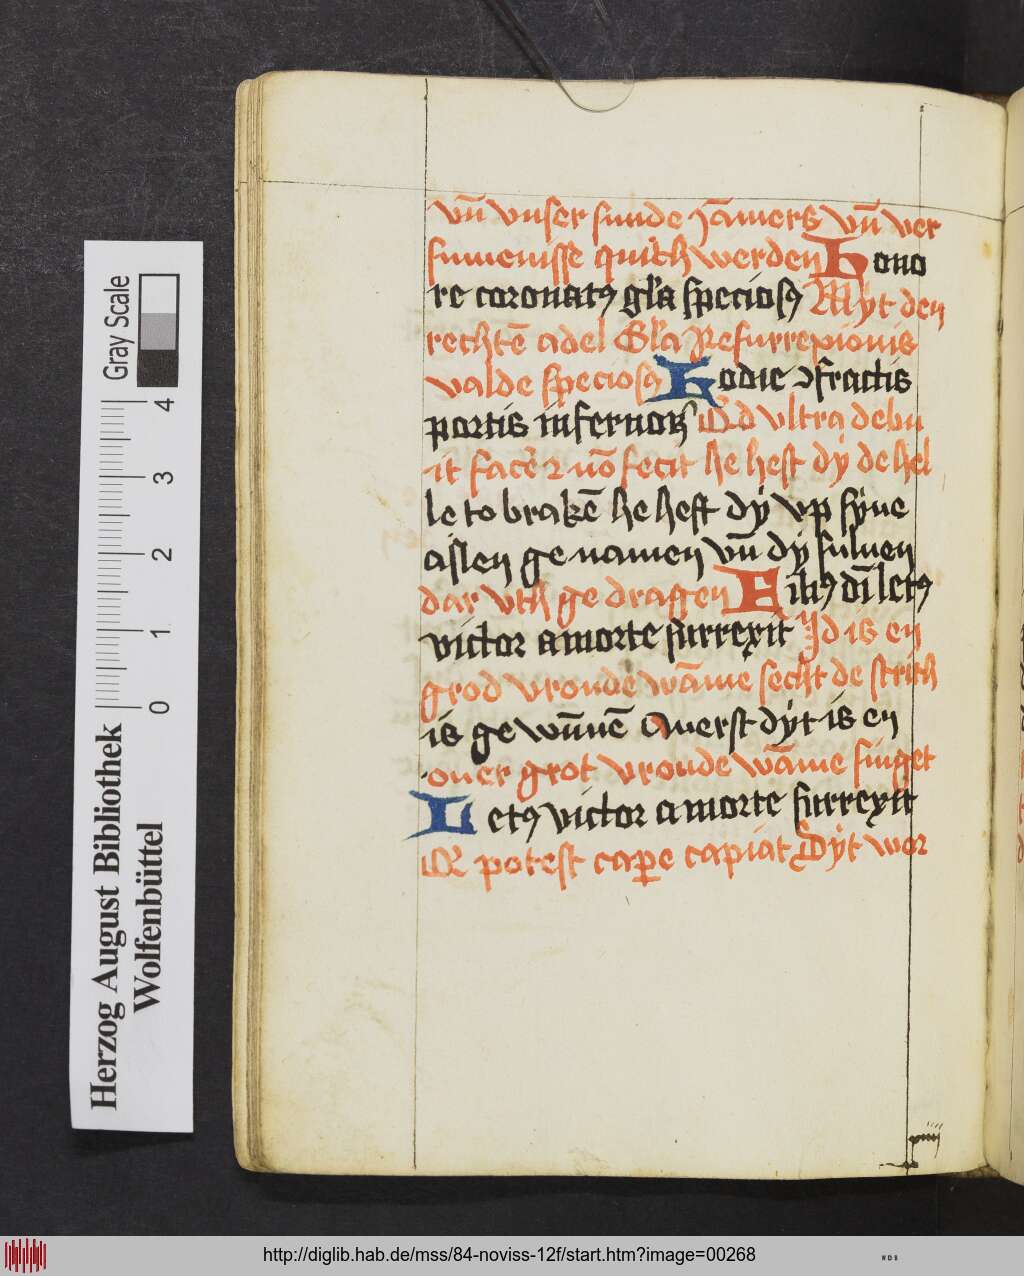 vn̄ vnser sunde jāmers vn̄ ver
sumenisse quith werden Hono
re coronatꝰ gl̓a speciosꝰ Myt den
rechtē adel Gl̓a Resurrexionis
valde speciosꝰ Hodie ꝯfractis
portis infernoꝝ Qd vltra debu
it facē ꝛ nō fecit he heft dy de hel
le to brakē he heft dy vp syne
aslen ge namen vn̄ dy suluen
dar vth ge dragen Filiꝰ dī letꝰ
victor a morte surrexit Id is en
grod vroude wāme secht de strith
is ge wūnē Auerst dyt is en
ouer grot vroude wāme singet
Letꝰ victor a morte surrexit
Q potest cape capiat Dyt wor
Herzog August Bibliothek
Wolfenbüttel
Gray Scale
0 1 2 3 4
http://diglib.hab.de/mss/84-noviss-12f/start.htm?image=00268